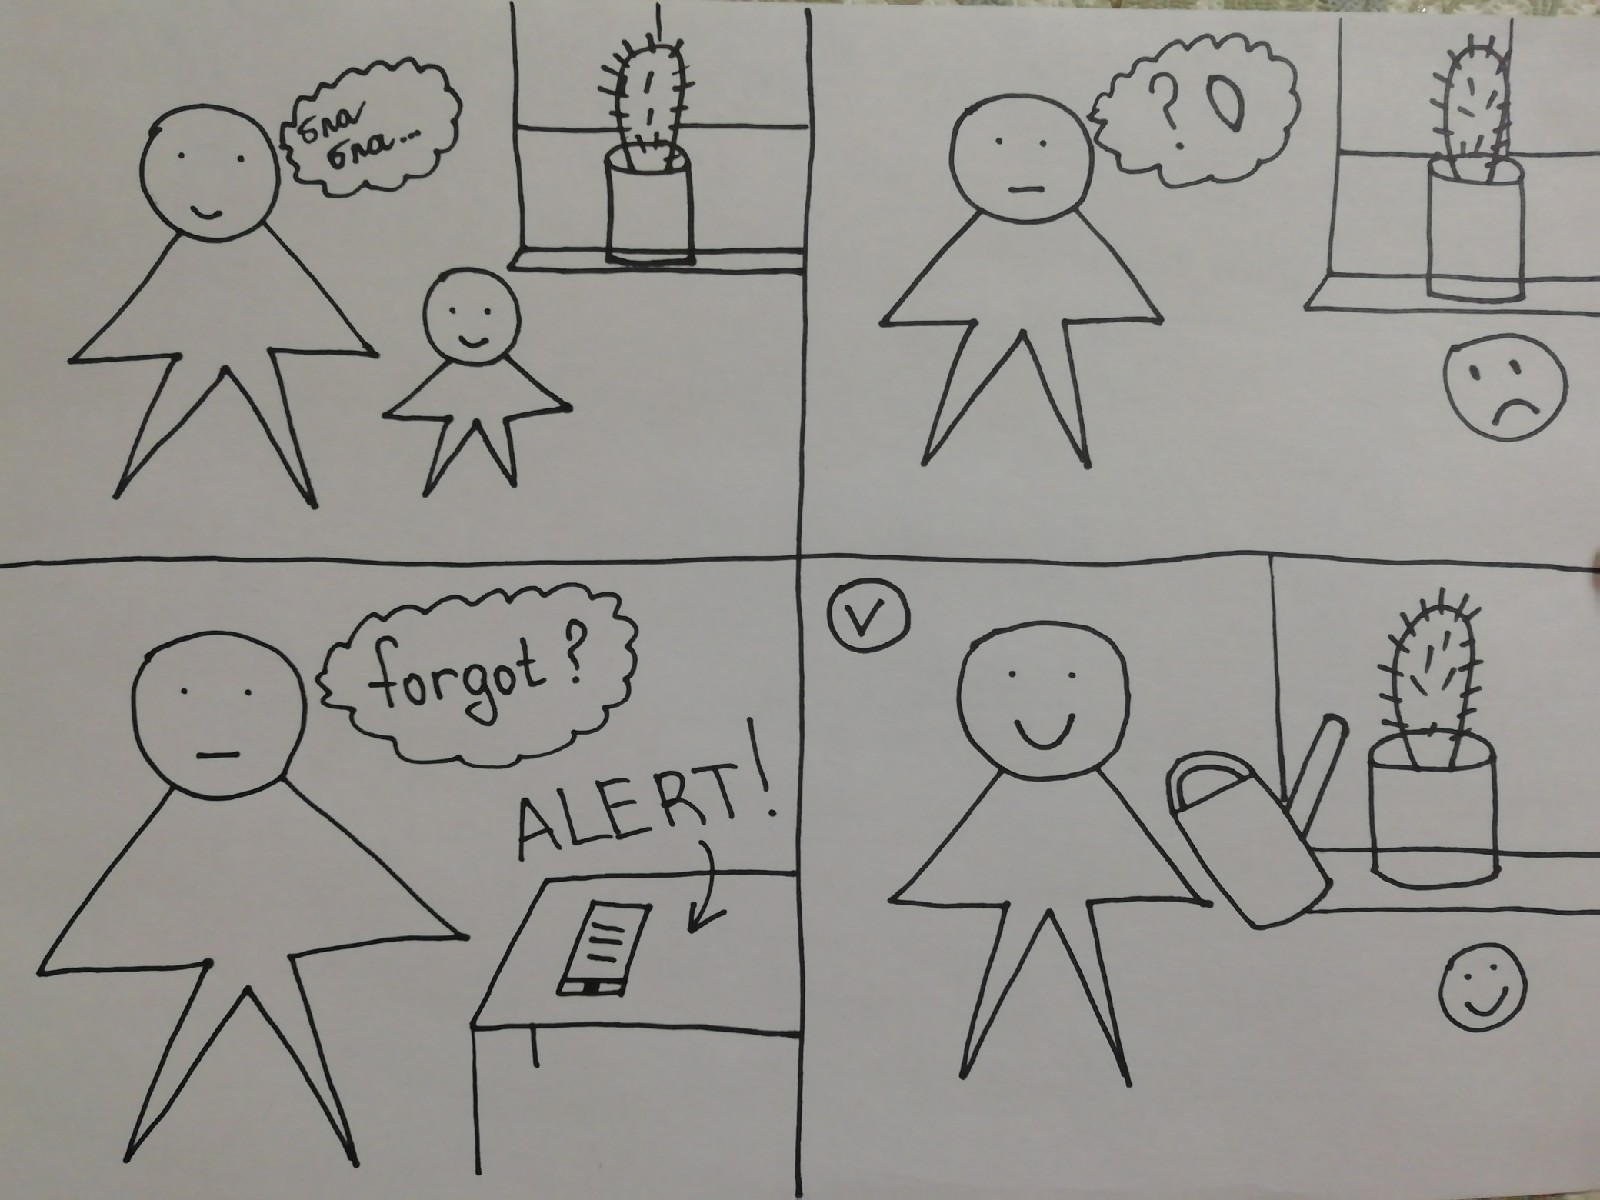 бла
бла...
?
forgot?
ALERT!
V